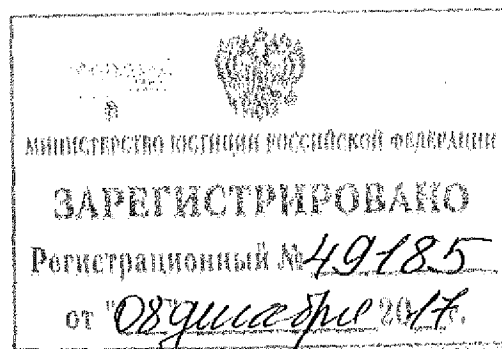 МИНИСТЕРСТВО ЮСТИЦИИ РОССИЙСКОЙ ФЕДЕРАЦИИ
ЗАРЕГИСТРИРОВАНО
Регистрационный № 49185
от "08" декабря 2017г.